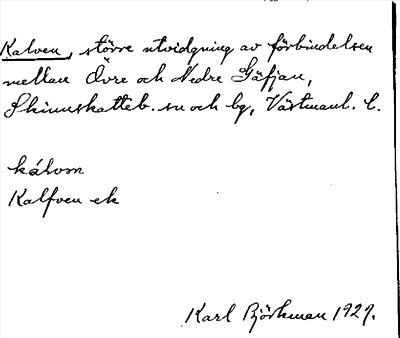 Kalven, större utvidgning av förbindelsen
mellan Övre och Nedre Gäfjan,
Skinnskatteb. sn och bg, Västmanl. l.
kálvom
Kalfven ek
Karl Björkman 1929.